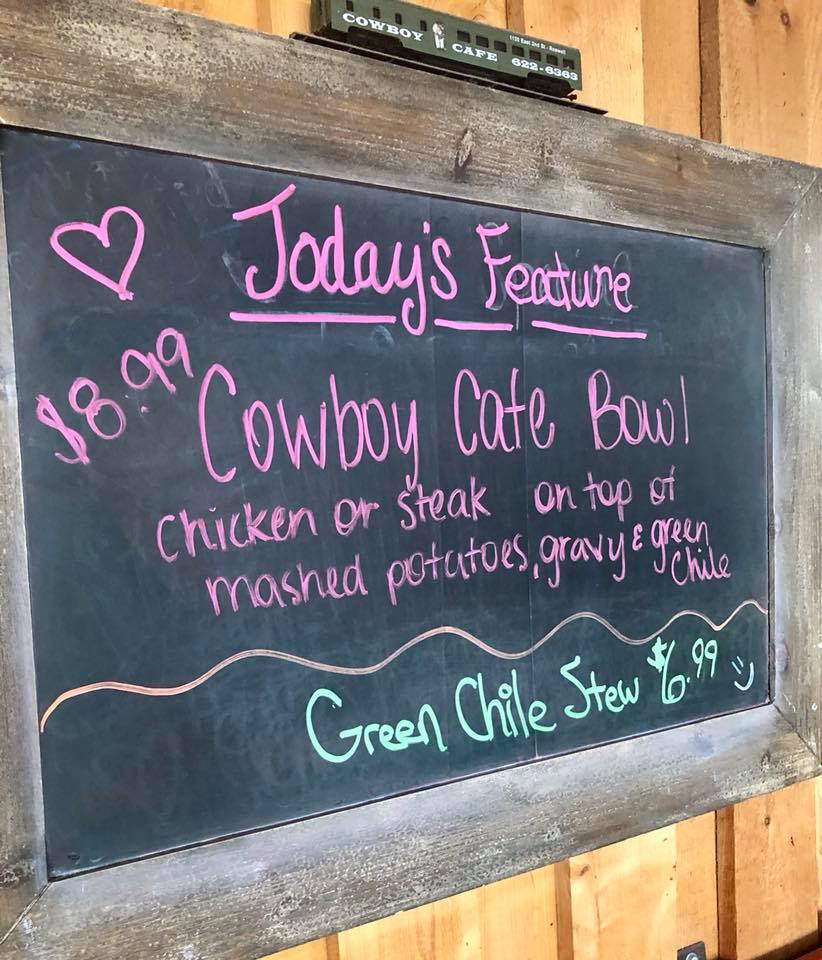 COWBOY CAFE
1120 East 2nd St - Roswell
622-6363
Today's Feature
$8.99
Cowboy Cafe Bowl
chicken or steak on top of
mashed potatoes, gravy & green
chile
Green Chile Stew $6.99